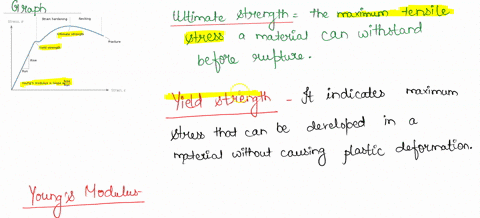 Graph
Stress, σ
Strain hardening
Necking
Ultimate strength
Yield strength
Fracture
Rise
Run
Young's modulus = slope =
Strain, ε
Ultimate strength = the maximum tensile
stress a material can withstand
before rupture.
Yield strength - It indicates maximum
stress that can be developed in a
material without causing plastic deformation.
Young's Modulus